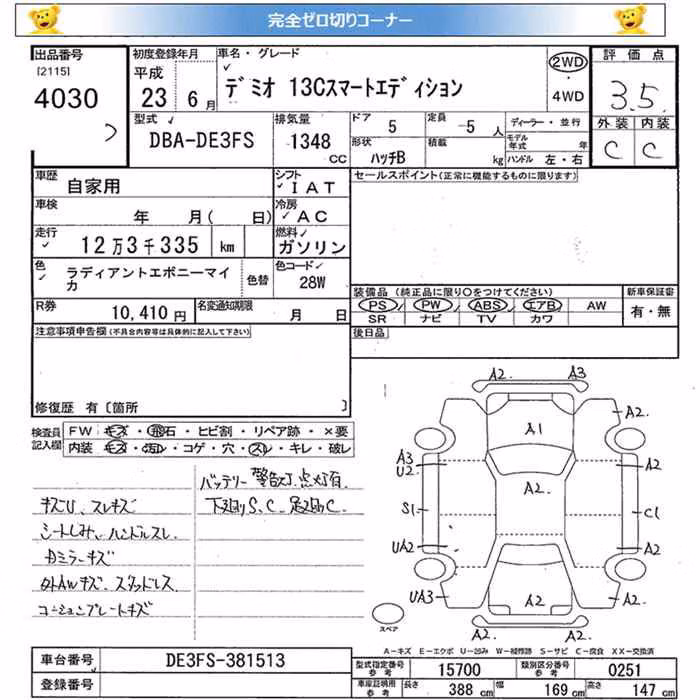 完全ゼロ切りコーナー
出品番号 初度登録年月 車名・グレード 評価点
[2115] 平成 デミオ 13Cスマートエディション 2WD 3.5
4030 23年 6月 4WD
型式 排気量 ドア 5 定員 5人 ディーラー・並行 外装 内装
DBA-DE3FS 1348cc 形状 ハッチB 積載 kg モデル年式 年 C C
ハンドル 左・右
車歴 自家用 シフト IAT セールスポイント(正常に機能するものに限ります)
車検 年 月( 日) 冷房 AC
走行 12万3千335 km 燃料 ガソリン
色 ラディアントエボニーマイカ 色替 色コード 28W
装備品(純正品に限り○をつけてください) 新車保証書
R券 10,410円 名変通知期限 月 日 PS PW ABS エアB AW 有・無
SR ナビ TV カワ
注意事項申告欄(不具合内容等は具体的に記入して下さい) 後日品
修復歴 有 [箇所 ]
検査員記入欄 FW キズ・飛石・ヒビ割・リペア跡・×要
内装 キズ・汚れ・コゲ・穴・スレ・キレ・破レ
バッテリー警告灯点灯有
キズU、スレキズ 下廻りS、C 足廻りC
シートしみ、ハンドルスレ
Rミラーキズ
外AWキズ スタッドレス
コーションプレートキズ
A2 A3
A1 A2
A3 U2 A2
A2
S1 C1
UA2 A2
UA3 A2 A2
A2 A2
スペア
A-キズ E-エクボ U-凹み W-補修跡 S-サビ C-腐食 XX-交換済
車台番号 DE3FS-381513 型式指定番号 参考 15700 類別区分番号 参考 0251
登録番号 車庫証明用 参考 長さ 388cm 幅 169cm 高さ 147cm